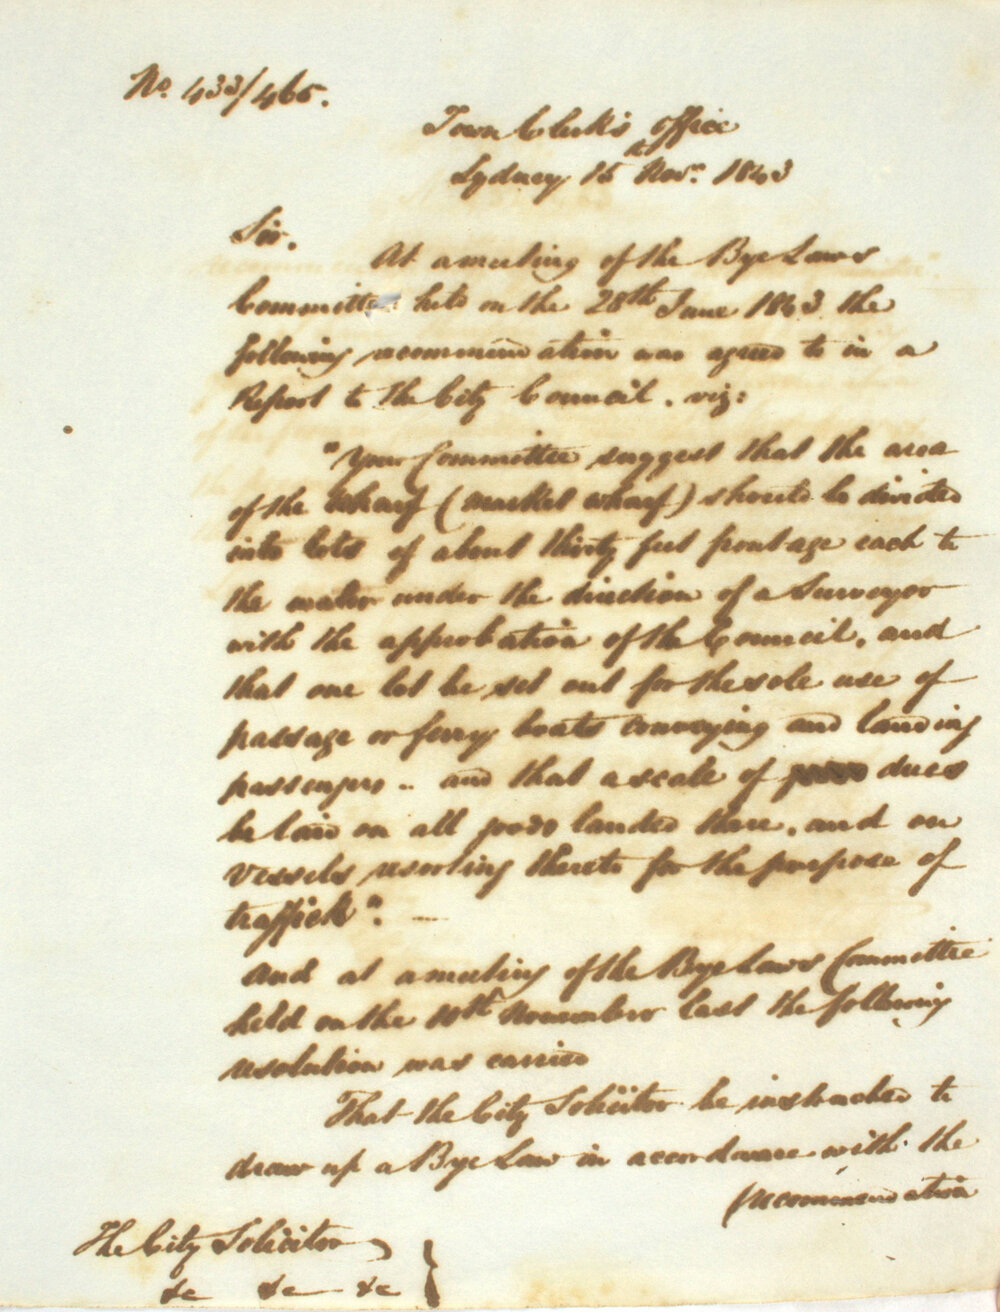 No. 433/465.
Town Clerk's Office
Sydney 15th Novr. 1843
Sir.
At a meeting of the Bye Laws
Committee held on the 28th June 1843 the
following recommendation was agreed to in a
Report to the City Council. viz:
"Your Committee suggest that the area
of the Wharf (Market Wharf) should be divided
into lots of about thirty feet frontage each to
the water under the direction of a Surveyor
with the approbation of the Council, and
that one lot be set out for the sole use of
passage or ferry boats conveying and landing
passengers .. and that a scale of dues
be laid on all goods landed there, and on
Vessels resorting thereto for the purpose of
traffick".
And at a meeting of the Bye Laws Committee
held on the 10th November last the following
resolution was carried
That the City Solicitor be instructed to
draw up a Bye Law in accordance with the
recommendation
The City Solicitor
&c &c &c